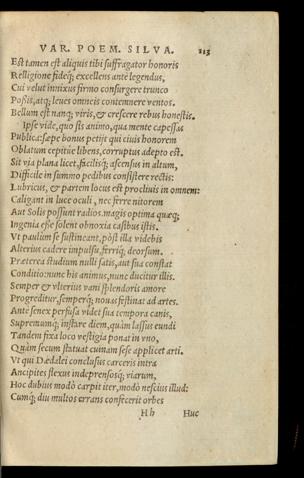 VAR. POEM. SILVA. 213
Est tamen est aliquis tibi suffragator honoris
Relligione fideq́; excellens ante legendus,
Cui velut innixus firmo consurgere trunco
Poßis, atq; leues omneis contemnere ventos.
Bellum est nanq; viris, & crescere rebus honestis.
Ipse vide, quo sis animo, qua mente capessas
Publica: sæpe bonus petijt qui ciuis honorem
Oblatum cepitue libens, corruptus adepto est.
Sit via plana licet, facilisq́; ascensus in altum,
Difficile in summo pedibus consistere rectis:
Lubricus, & partem locus est procliuis in omnem:
Caligant in luce oculi, nec ferre nitorem
Aut Solis possunt radios. magis optima quæq;
Ingenia esse solent obnoxia casibus istis.
Vt paulum se sustineant, pòst illa videbis
Alterius cadere impulsu, ferriq́; deorsum.
Præterea studium nulli satis, aut sua constat
Conditio: nunc his animus, nunc ducitur illis.
Semper & vlterius vani splendoris amore
Progreditur, semperq́; nouas festinat ad artes.
Ante senex perfusa videt sua tempora canis,
Supremumq́; instare diem, quàm lassus eundi
Tandem fixa loco vestigia ponat in vno,
Quàm secum statuat cuinam sese applicet arti.
Vt qui Dædalei conclusus carceris intra
Ancipites flexus indeprensosq́; viarum,
Hoc dubius modò carpit iter, modò nescius illud:
Cumq́; diu multos errans confecerit orbes
H h Huc